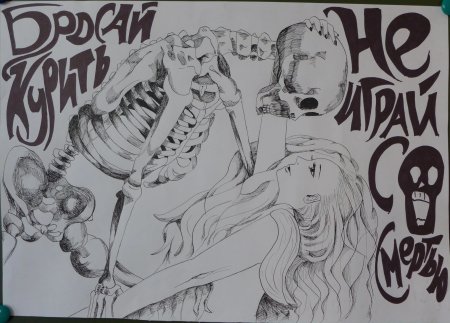 БРОСАЙ
КУРИТЬ
НЕ
ИГРАЙ
СО
СМЕРТЬЮ